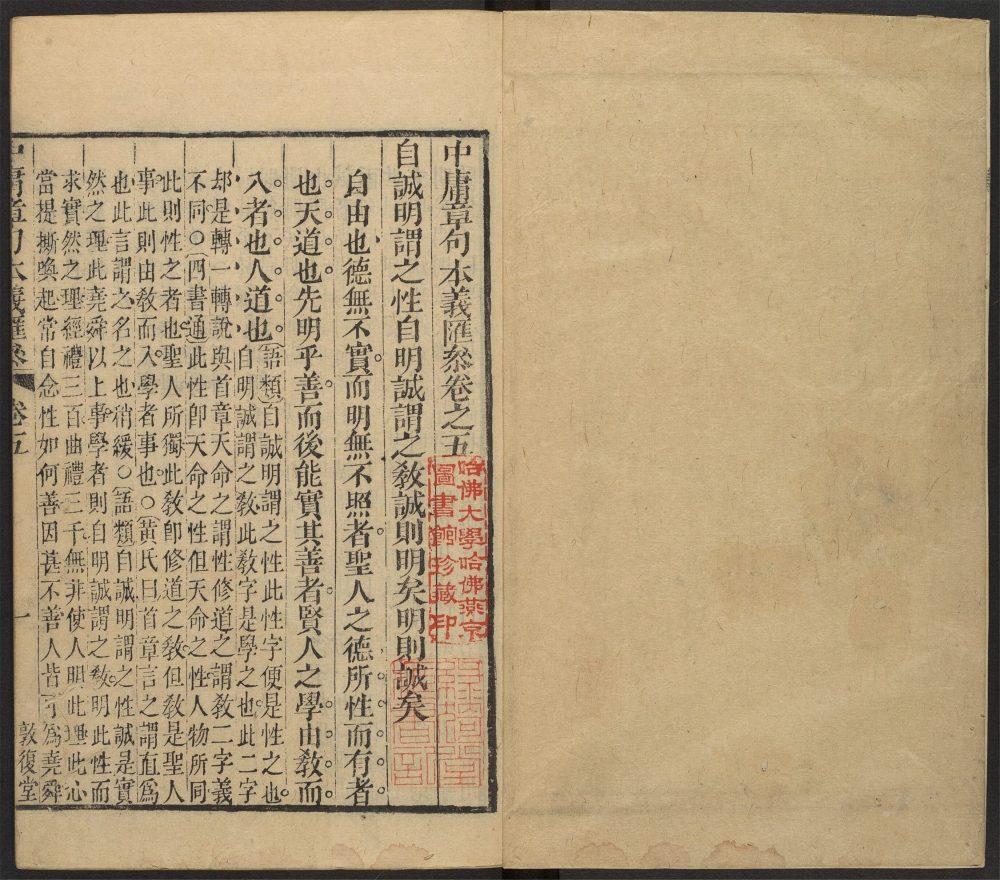 中庸章句本義匯叅卷之五
自誠明謂之性自明誠謂之敎誠則明矣明則誠矣
自由也德無不實而明無不照者聖人之德所性而有者
也天道也先明乎善而後能實其善者賢人之學由敎而
入者也人道也
語類自誠明謂之性此性字便是性之也
自明誠謂之敎此敎字是學之也此二字
却是轉一轉說與首章天命之謂性修道之謂敎二字義
不同○四書通此性卽天命之性但天命之性人物所同
此則性之者也聖人所獨此敎卽修道之敎但敎是聖人
事此則由敎而入學者事也○黃氏曰首章言之謂直爲
也此言謂之名之也稍緩○語類自誠明謂之性誠是實
然之理此堯舜以上事學者則自明誠謂之敎明此性而
求實然之理經禮三百曲禮三千無非使人明此理此心
當提撕喚起常自念性如何善因甚不善人皆可爲堯舜
中庸章句本義匯叅 卷五 一 敦復堂
哈佛大學哈佛燕京
圖書館珍藏印